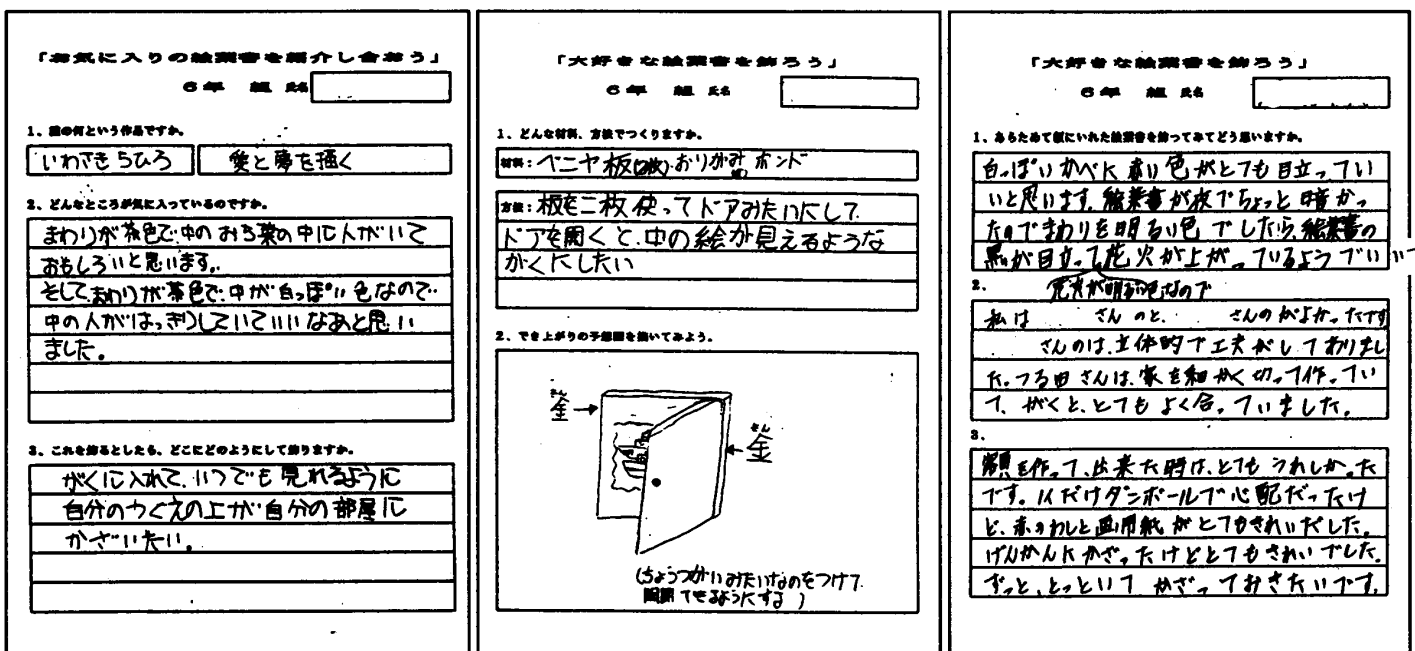 「お気に入りの絵葉書を紹介し合おう」
6年 組 氏名
1、誰の何という作品ですか。
いわさきちひろ 愛と夢を描く
2、どんなところが気に入っているのですか。
まわりが茶色で中のおち葉の中に人がいて
おもしろいと思います。
そしてまわりが茶色で、中が白っぽい色なので
中の人がはっきりしていていいなあと思い
ました。
3、これを飾るとしたら、どこにどのようにして飾りますか。
がくに入れて、いつでも見れるように
自分のつくえの上か自分の部屋に
かざいたい。
「大好きな絵葉書を飾ろう」
6年 組 氏名
1、どんな材料、方法でつくりますか。
材料:ベニヤ板(2枚)おりがみ ボンド
方法:板を二枚使ってドアみたいにして
ドアを開くと、中の絵が見えるような
がくにしたい
2、でき上がりの予想図を描いてみよう。
金→
←金
(ちょうつがいみたいなのをつけて
開閉できるようにする)
「大好きな絵葉書を飾ろう」
6年 組 氏名
1、あらためて額にいれた絵葉書を飾ってみてどう思いますか。
白っぽいかべに 色がとても目立ってい
いと思います。絵葉書が夜でちょっと暗かっ
たのでまわりを明るい色でしたら、絵葉書の
黒が目立って花火が上がっているようでいい
花火が明るい色なので
2.
私は さんのと、 さんのがよかったです
さんのは、立体的で工夫がしてありまし
た。つる田さんは、家を細かく切って作ってい
て、がくと、とてもよく合っていました。
3.
額を作って、出来た時は、とてもうれしかった
です。 だけダンボールで心配だったけ
ど、赤のわしと画用紙がとてもきれいでした。
げんかんにかざったけどとてもきれいでした。
ずっと、とっといてかざっておきたいです。